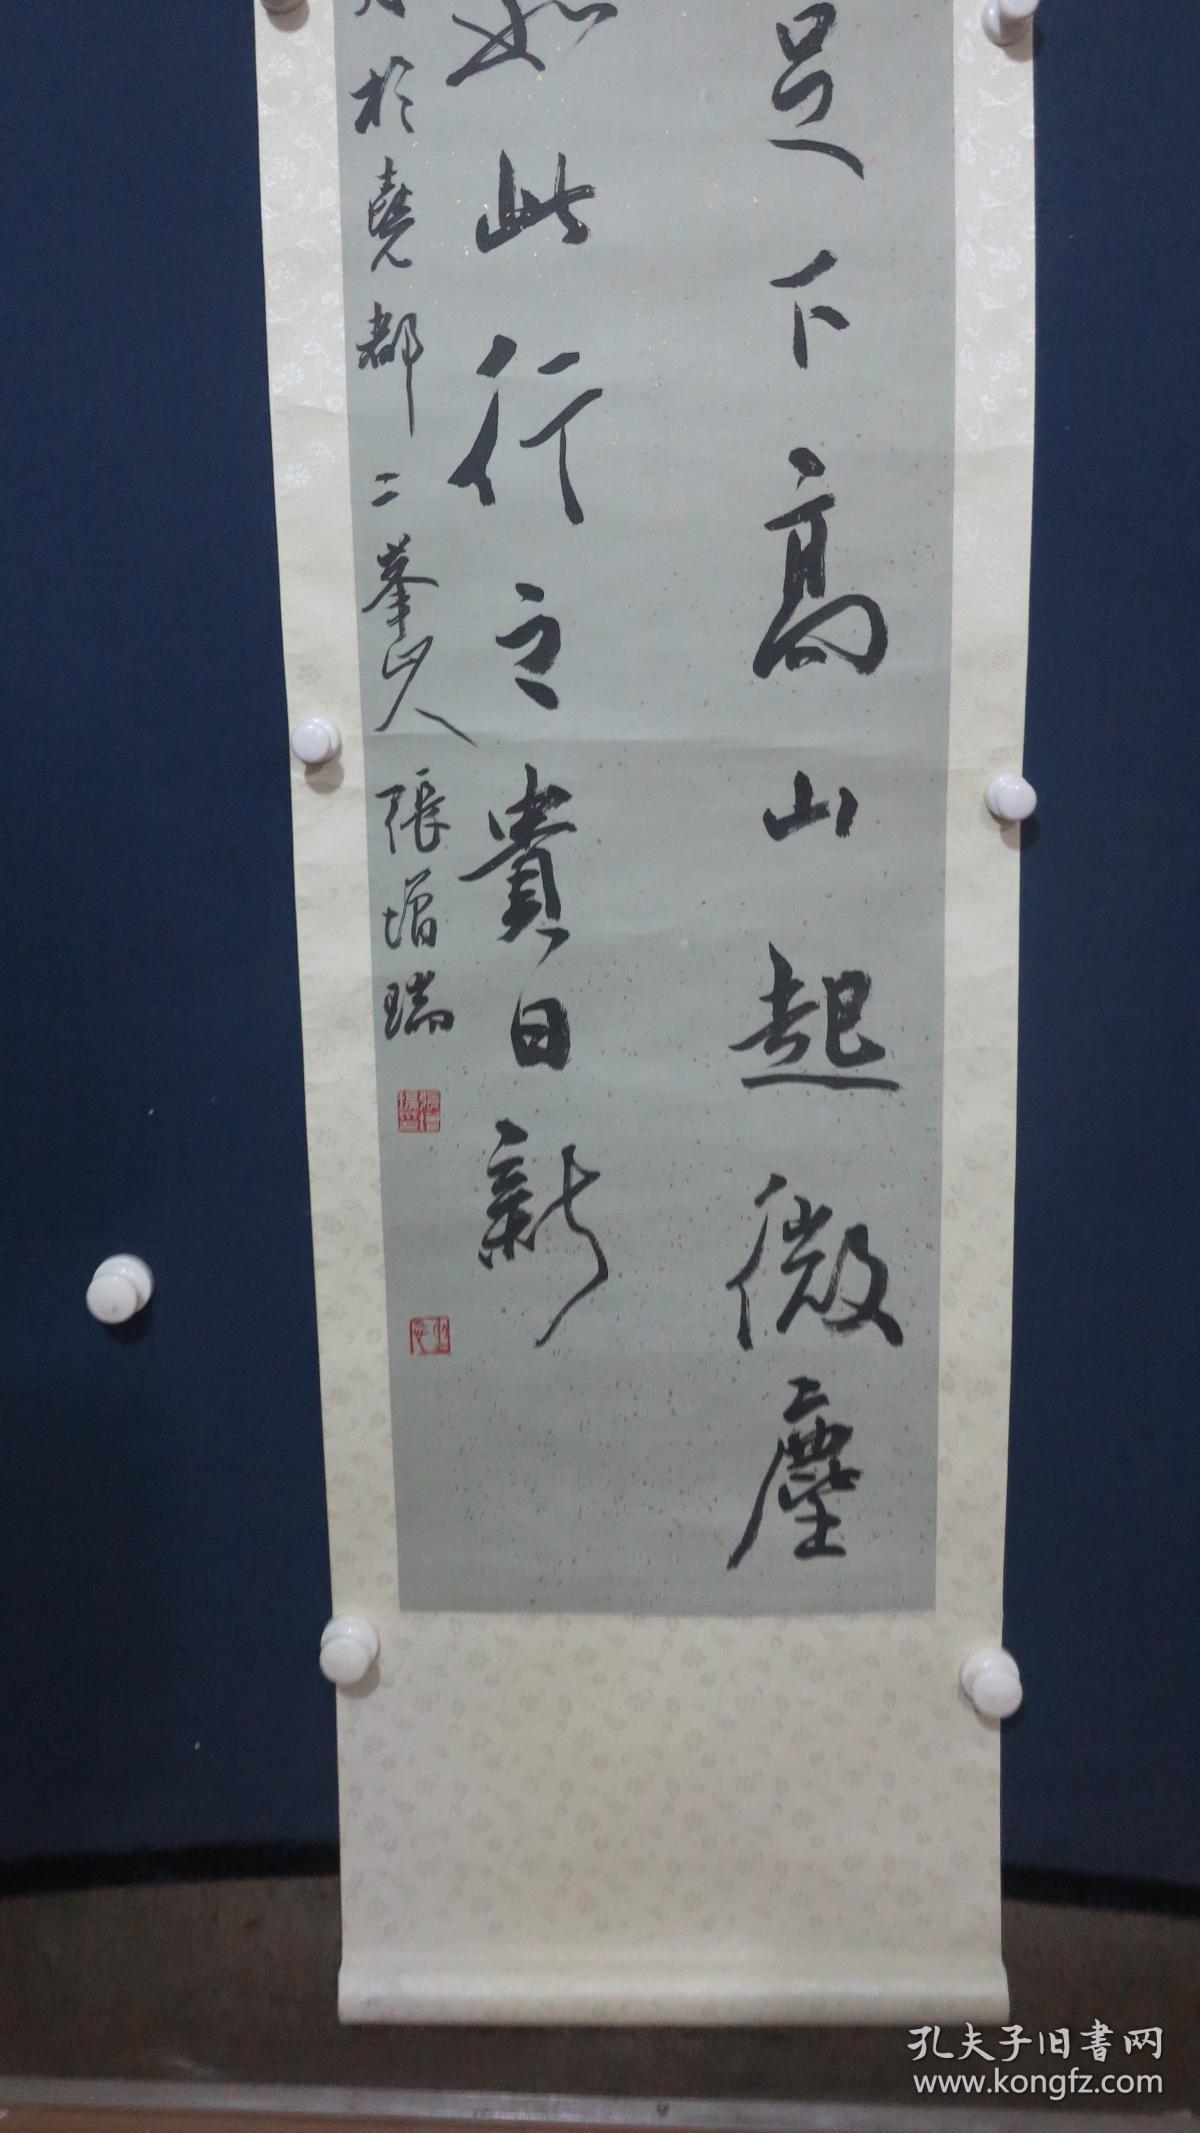 足下高山起微塵
如此行之貴日新
於堯都二峯山人張增瑞
孔夫子旧書网
www.kongfz.com